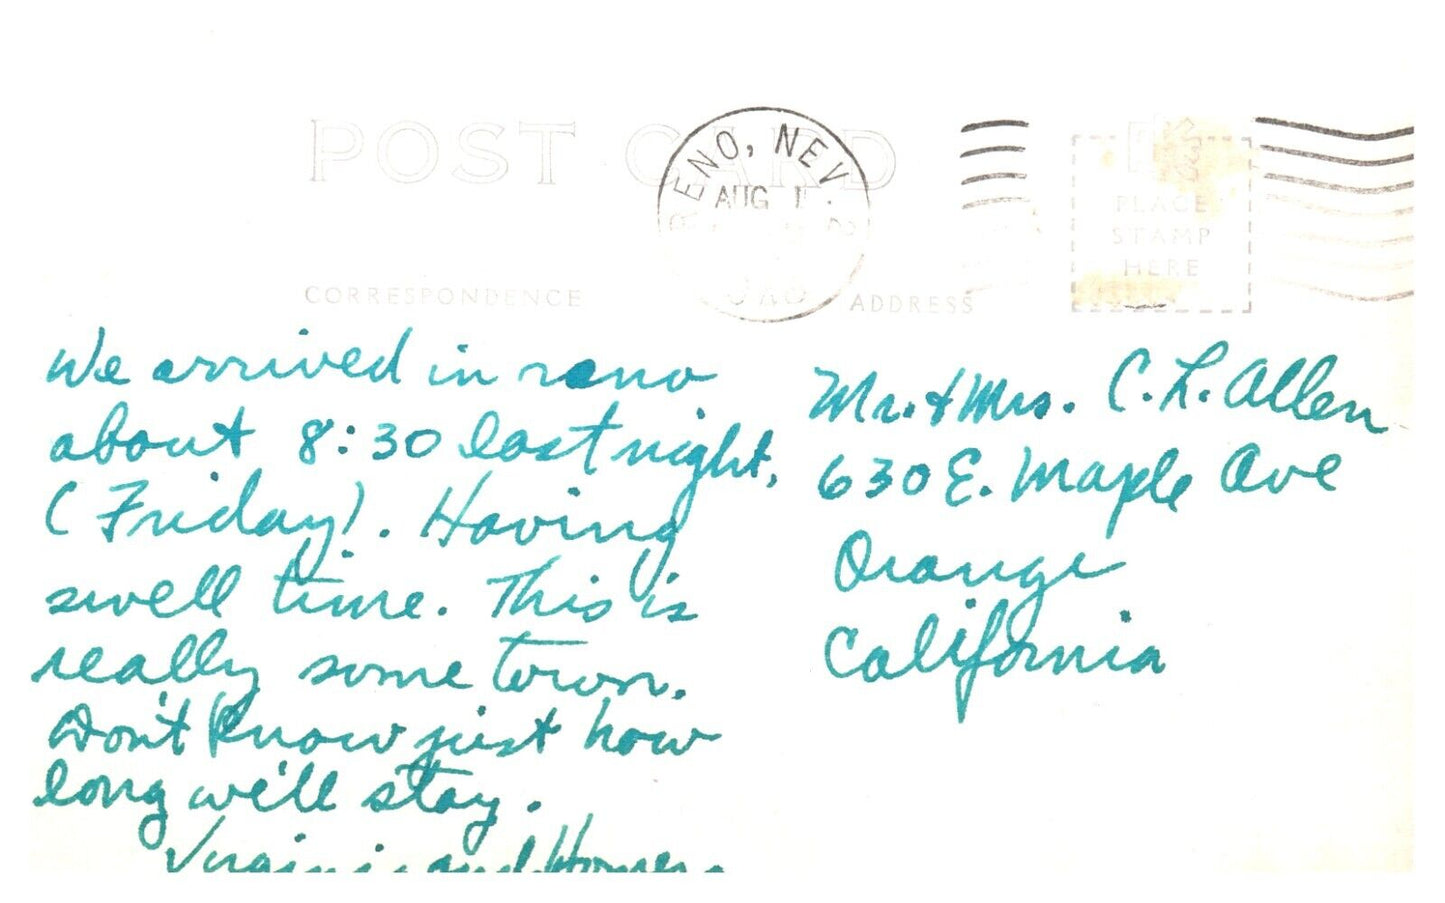 POST CARD
RENO, NEV
AUG 1
PLACE
STAMP
HERE
CORRESPONDENCE
ADDRESS
We arrived in reno
about 8:30 last night,
(Friday). Having
swell time. This is
really some town.
Don't know just how
long we'll stay.
Virginia and Homer
Mr. + Mrs. C. L. Allen
630 E. Maple Ave
Orange
California